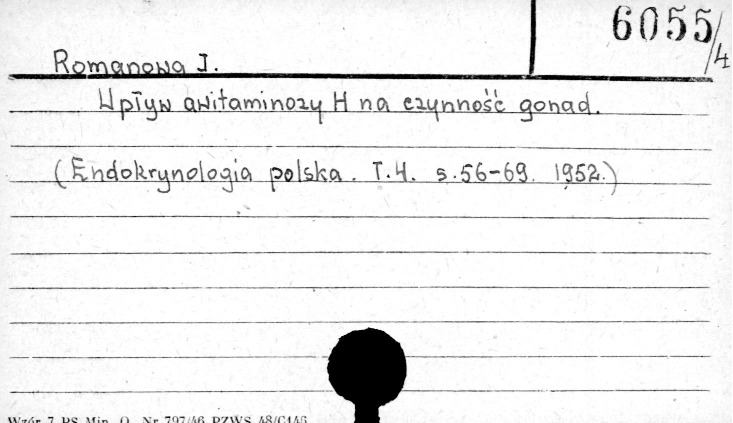 6055/4
Romanowa I.
Wpływ awitaminozy H na czynność gonad.
(Endokrynologia polska. T.4. s.56-69. 1952.)
Wzór 7 PS Min. O. Nr 797/46 PZWS 48/C146